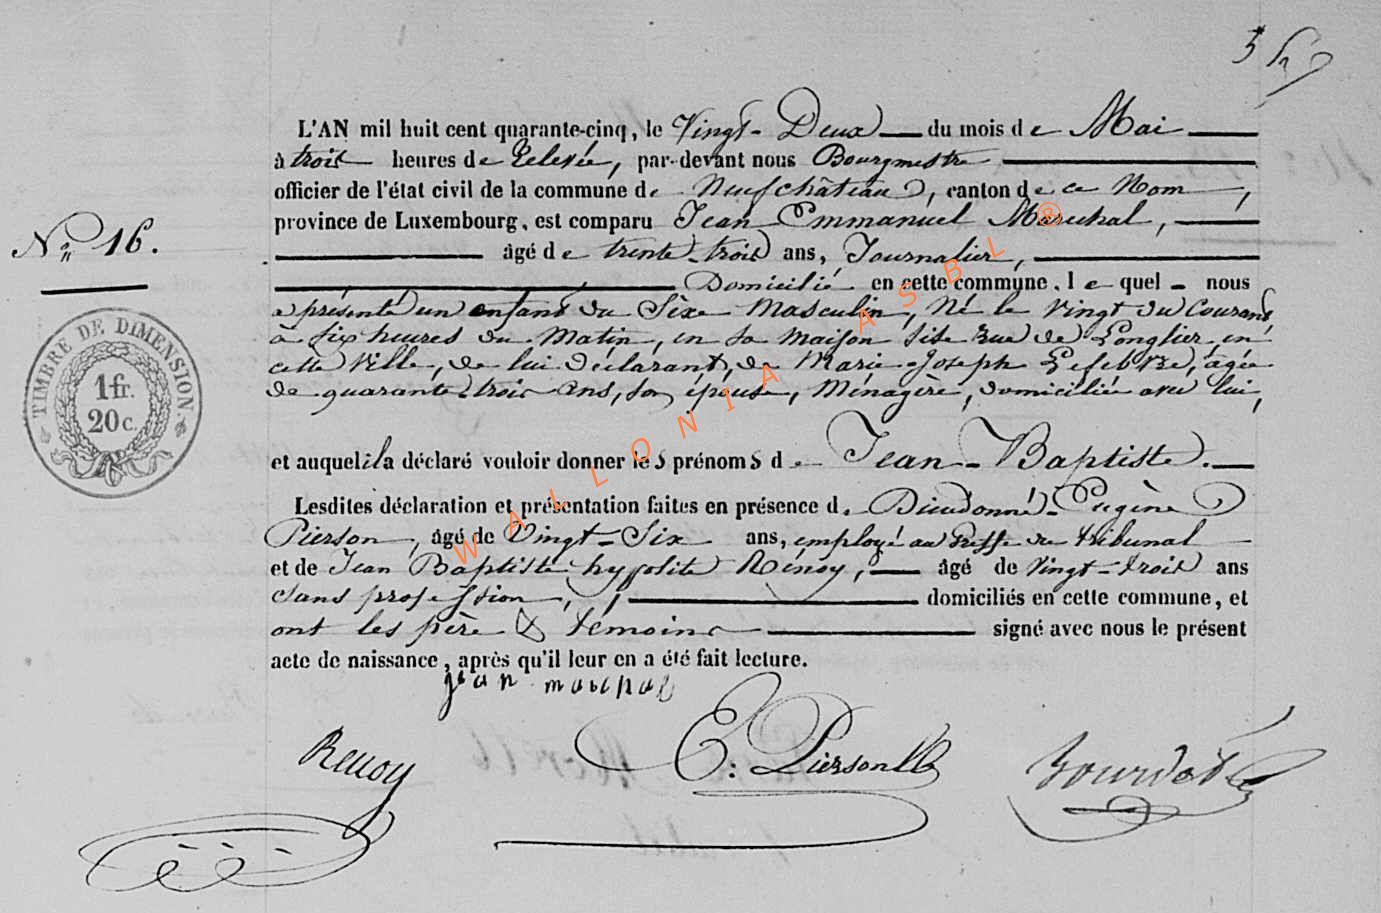 L'AN mil huit cent quarante-cinq, le Vingt-Deux du mois de Mai
à trois heures de Relevée, par-devant nous Bourgmestre
officier de l'état civil de la commune de Neufchâteau, canton de ce Nom,
province de Luxembourg, est comparu Jean Emmanuel Maréchal,
N° 16.
âgé de trente-trois ans, Journalier,
Domicilié en cette commune, lequel nous
a présenté un enfant du Sèxe Masculin, Né le Vingt du Courant,
à six heures du Matin, en sa maison sise Rue de Longlier, en
cette Ville, de lui déclarant, de Marie-Joseph Lefebvre, agée
de quarante trois ans, son épouse, Ménagère, domiciliée avec lui,
TIMBRE DE DIMENSION.
1 fr.
20 c.
et auquel il a déclaré vouloir donner les prénoms de Jean-Baptiste.
Lesdites déclaration et présentation faites en présence de Dieudonné-Eugène
Pierson, âgé de Vingt-Six ans, employé au Greffe du tribunal
et de Jean Baptiste hypolite Rénoy, âgé de Vingt-trois ans
sans profession, domiciliés en cette commune, et
ont les père & témoins signé avec nous le présent
acte de naissance, après qu'il leur en a été fait lecture.
Renoy
E. Pierson
WALLONIA ASBL ®